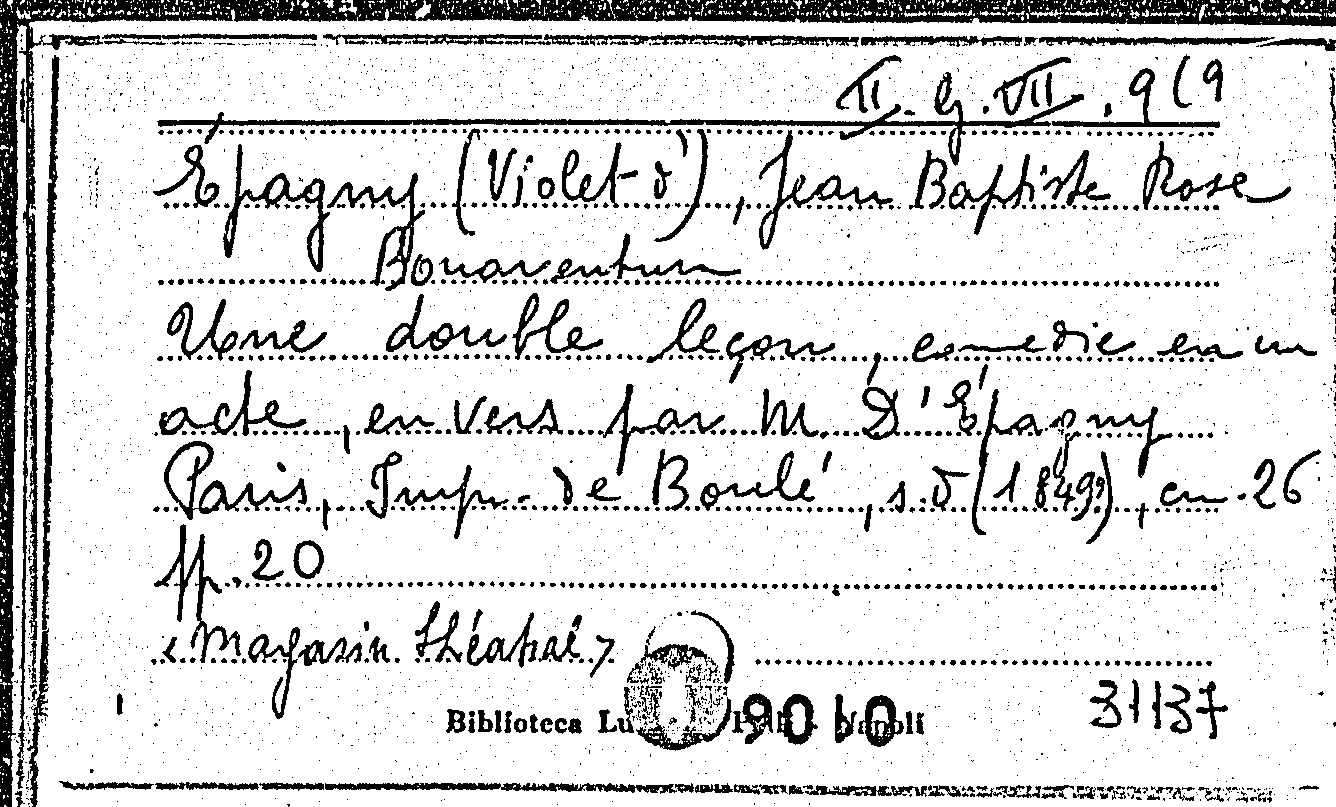 II. G. VII. 9(9
Épagny (Violet d'), Jean Baptiste Rose
Bonaventura
Une double leçon, comedie en un
acte, en vers par M. D'Épagny
Paris, Imp. de Boulé, s.d (1849?), cm. 26
pp. 20
«Magasin théatral»
Biblioteca Lu Napoli
31137